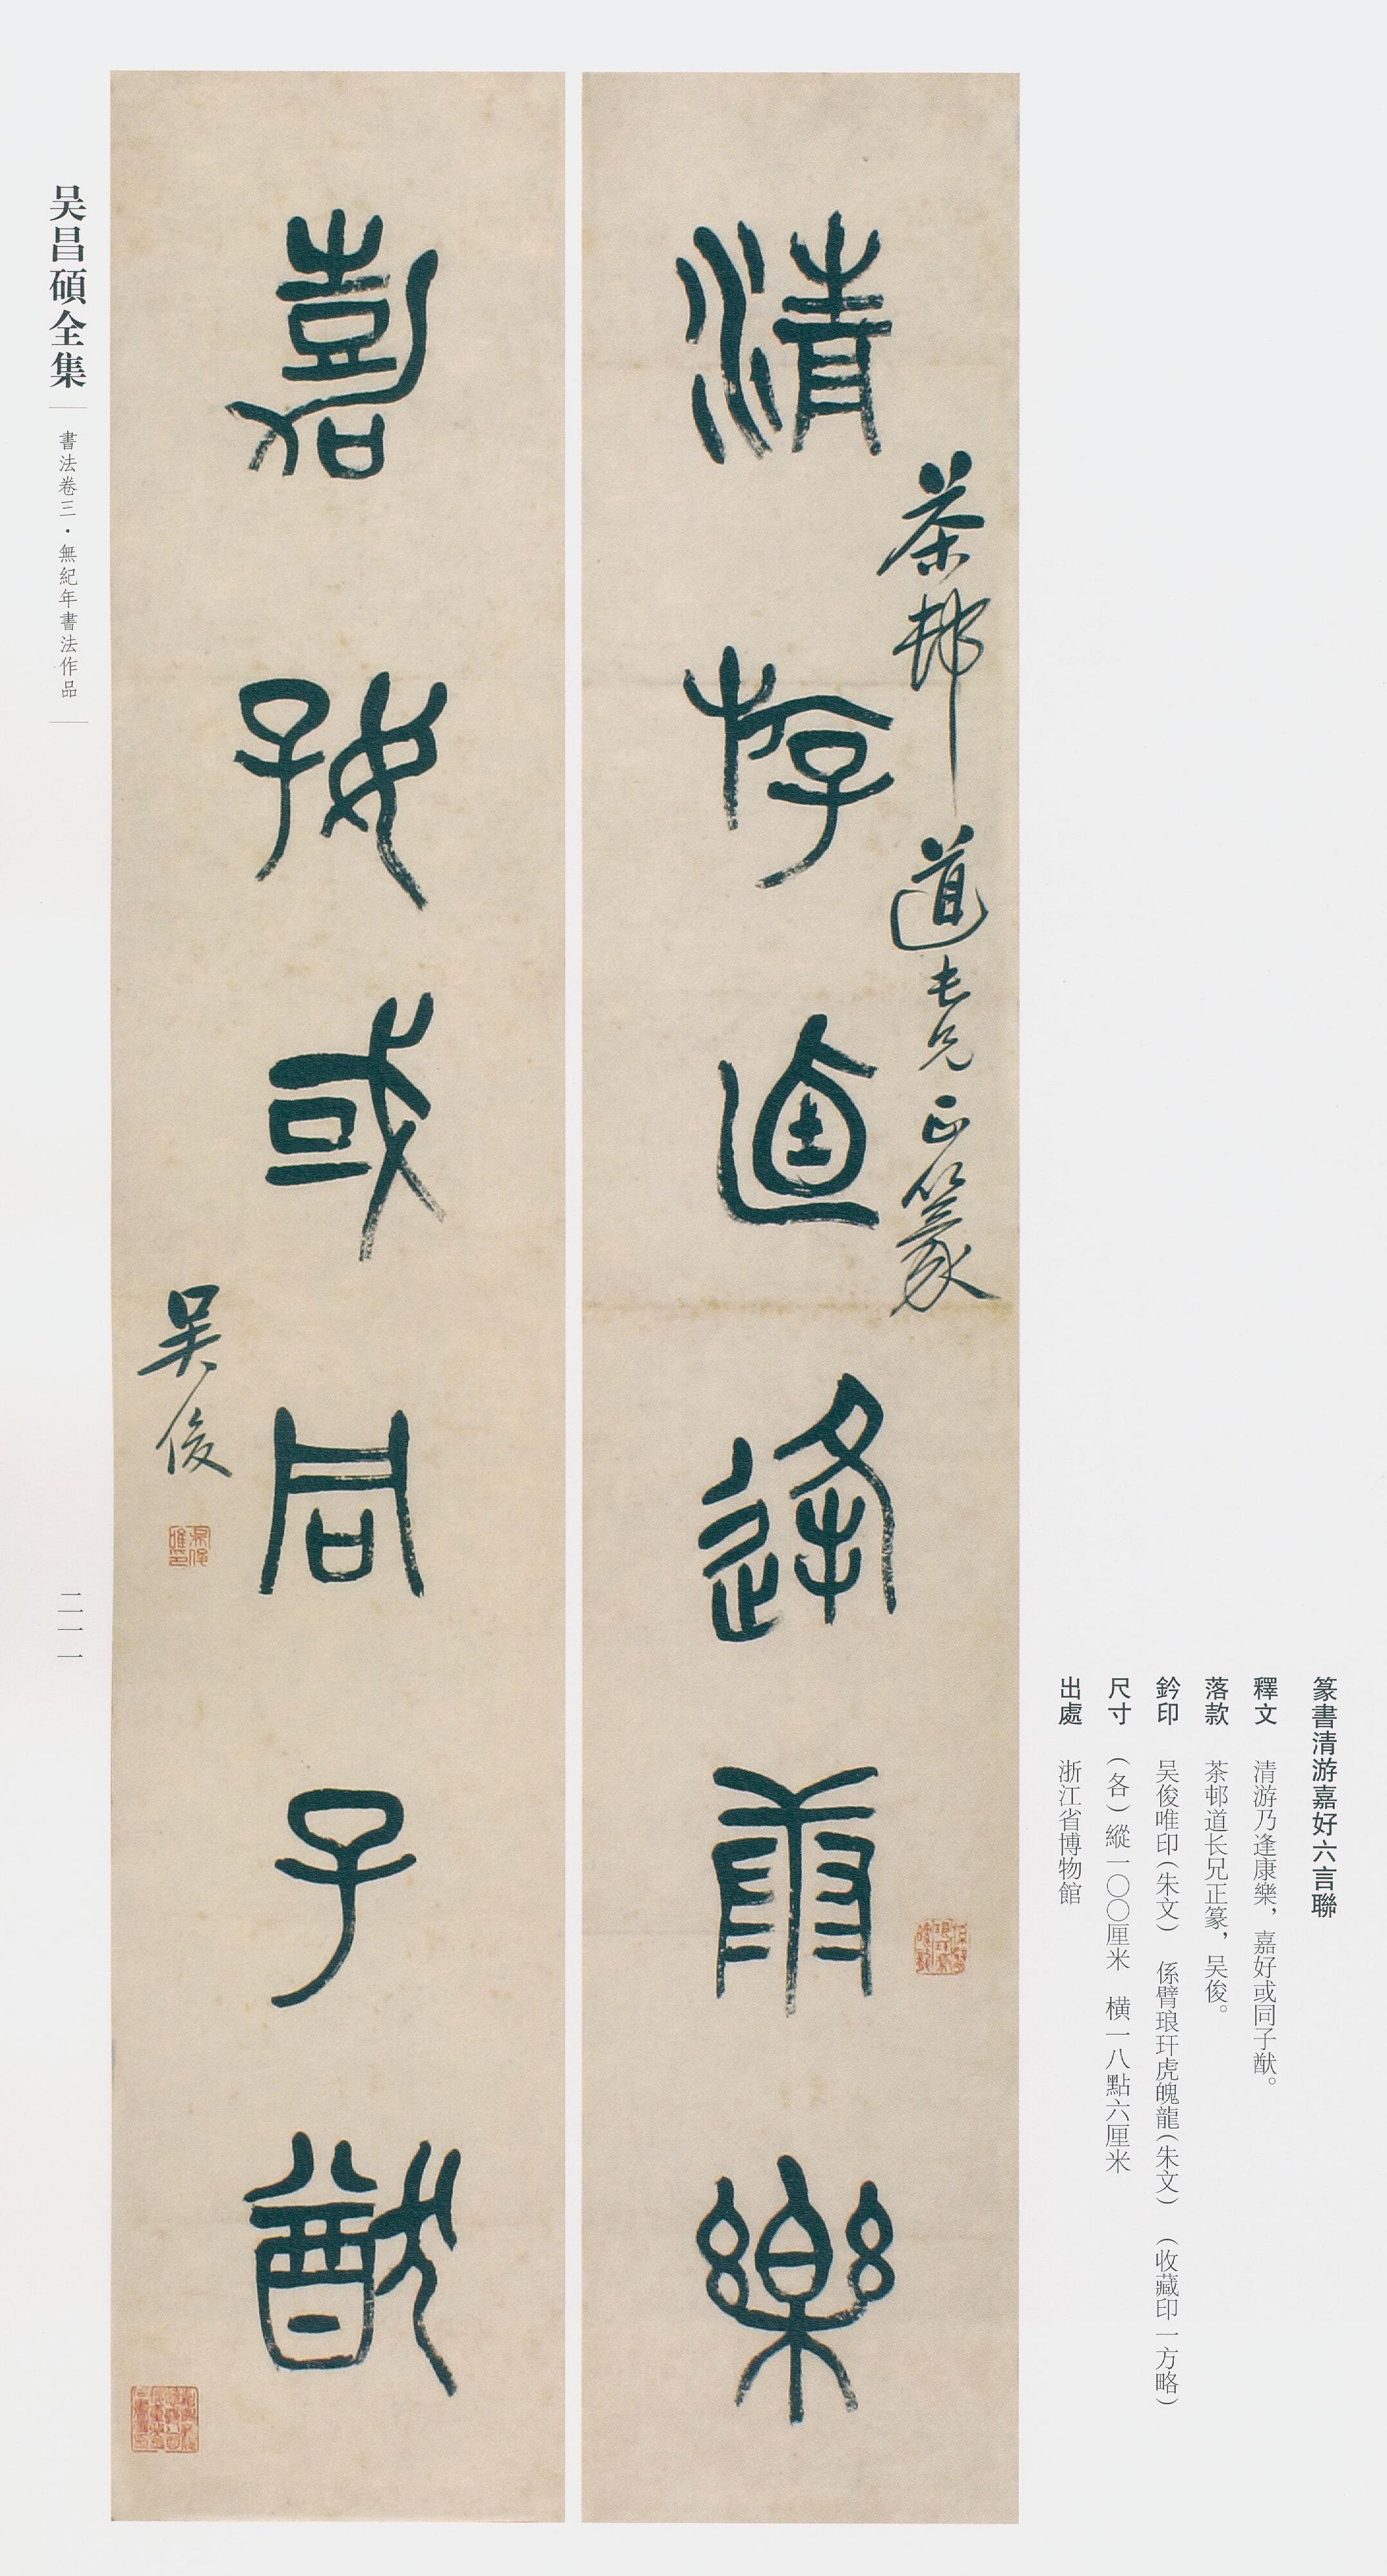 篆書清游嘉好六言聯
釋文　清游乃逢康樂，嘉好或同子猷。
落款　茶邨道长兄正篆，吴俊。
鈐印　吴俊唯印（朱文）　係臂琅玕虎魄龍（朱文）　（收藏印一方略）
尺寸　（各）縱一〇〇厘米　横一八點六厘米
出處　浙江省博物館
茶邨道长兄正篆
清游乃逢康樂
嘉好或同子猷
吴俊
吴俊唯印
吴昌碩全集
書法卷三·無紀年書法作品
二一一